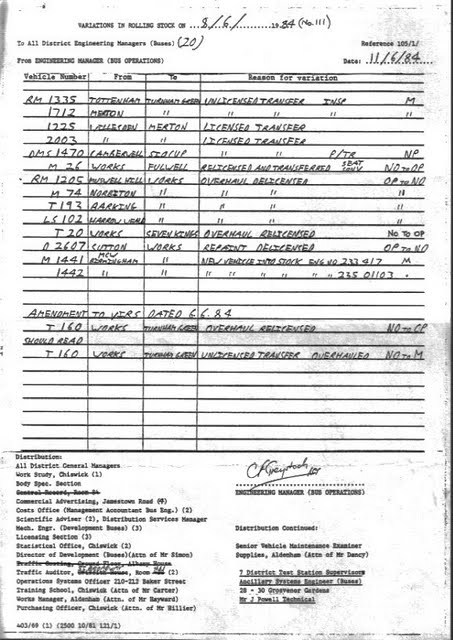 VARIATIONS IN ROLLING STOCK ON 8/6/ 1984 (No. 111)
To All District Engineering Managers (Buses) (20) Reference 105/1/
From ENGINEERING MANAGER (BUS OPERATIONS) Date: 11/6/84
Vehicle Number From To Reason for variation
RM 1335 TOTTENHAM TURNHAM GREEN UNLICENSED TRANSFER INSP M
1712 MERTON " " " "
1225 WILLESDEN MERTON LICENSED TRANSFER
2003 " " LICENSED TRANSFER
DMS 1470 CAMBERWELL SIDCUP " " P/TR NP
M 26 WORKS FULWELL RELICENSED AND TRANSFERRED SEAT CONV NO TO OP
RM 1205 MUSWELL HILL WORKS OVERHAUL DELICENSED OP TO NO
M 74 NORBITON " " " "
T 193 BARKING " " " "
LS 102 HARROW WEALD " " " "
T 20 WORKS SEVEN KINGS OVERHAUL RELICENSED NO TO OP
D 2607 SUTTON WORKS REPAINT DELICENSED OP TO NO
M 1441 MCW BIRMINGHAM " NEW VEHICLE INTO STOCK ENG NO 233 417 M
1442 " " " " " " " " 235 01103 .
AMENDMENT TO VIRS DATED 6.6.84
T 160 WORKS TURNHAM GREEN OVERHAUL RELICENSED NO TO OP
SHOULD READ
T 160 WORKS TURNHAM GREEN UNLICENSED TRANSFER OVERHAULED NO TO M
Distribution:
All District General Managers
Work Study, Chiswick (1)
Body Spec. Section
Central Record, Room 84
Commercial Advertising, Jamestown Road
Costs Office (Management Accountant Bus Eng.) (2)
Scientific Adviser (2), Distribution Services Manager
Mech. Engr. (Development Buses) (3)
Licensing Section (3)
Statistical Office, Chiswick (2)
Director of Development (Buses)(Attn of Mr Simon)
Traffic Seating, Ground Floor, Albany House
Traffic Auditor, House, Room (2)
Operations Systems Officer 210-212 Baker Street
Training School, Chiswick (Attn of Mr Carter)
Works Manager, Aldenham (Attn of Mr Hayward)
Purchasing Officer, Chiswick (Attn of Mr Hillier)
ENGINEERING MANAGER (BUS OPERATIONS)
Distribution Continued:
Senior Vehicle Maintenance Examiner
Supplies, Aldenham (Attn of Mr Dancy)
7 District Test Station Supervisors
Ancillary Systems Engineer (Buses)
28 - 30 Grosvenor Gardens
Mr J Powell Technical
403/69 (1) (2500 10/81 121/1)